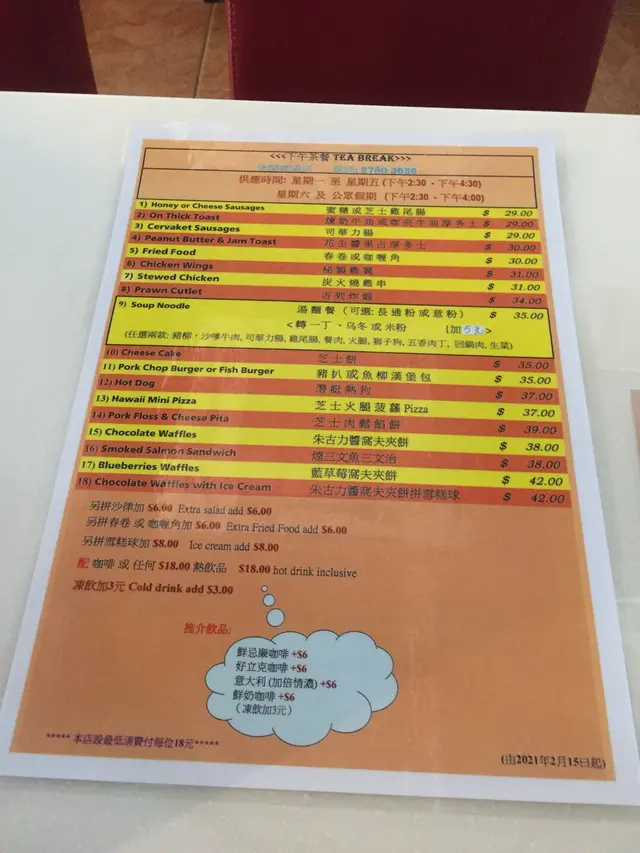 <<<下午茶餐 TEA BREAK>>>
2780 3636
供應時間: 星期一 至 星期五 (下午2:30 - 下午4:30)
星期六 及 公眾假期 (下午2:30 - 下午4:00)
1) Honey or Cheese Sausages 蜜糖或芝士雞尾腸 $ 29.00
2) On Thick Toast 煉奶牛油或咖央牛油厚多士 $ 29.00
3) Cervaket Sausages 司華力腸 $ 29.00
4) Peanut Butter & Jam Toast 花生醬果占厚多士 $ 30.00
5) Fried Food 春卷或咖喱角 $ 30.00
6) Chicken Wings 秘製雞翼 $ 31.00
7) Stewed Chicken 炭火燒雞串 $ 31.00
8) Prawn Cutlet 吉列炸蝦 $ 34.00
9) Soup Noodle 湯麵餐 (可選:長通粉或意粉) $ 35.00
<轉一丁、烏冬或米粉 (加5元)>
(任選兩款: 豬柳，沙嗲牛肉, 司華力腸, 雞尾腸, 餐肉, 火腿, 獅子狗, 五香肉丁, 回鍋肉, 生菜)
10) Cheese Cake 芝士餅 $ 35.00
11) Pork Chop Burger or Fish Burger 豬扒或魚柳漢堡包 $ 35.00
12) Hot Dog 潛艇熱狗 $ 37.00
13) Hawaii Mini Pizza 芝士火腿菠蘿Pizza $ 37.00
14) Pork Floss & Cheese Pita 芝士肉鬆餡餅 $ 39.00
15) Chocolate Waffles 朱古力醬窩夫夾餅 $ 38.00
16) Smoked Salmon Sandwich 煙三文魚三文治 $ 38.00
17) Blueberries Waffles 藍草莓窩夫夾餅 $ 42.00
18) Chocolate Waffles with Ice Cream 朱古力醬窩夫夾餅拼雪糕球 $ 42.00
另拼沙律加 $6.00 Extra salad add $6.00
另拼春卷 或 咖喱角加 $6.00 Extra Fried Food add $6.00
另拼雪糕球加 $8.00 Ice cream add $8.00
配 咖啡 或 任何 $18.00 熱飲品 $18.00 hot drink inclusive
凍飲加3元 Cold drink add $3.00
推介飲品:
鮮忌廉咖啡 +$6
好立克咖啡 +$6
意大利 (加倍情濃) +$6
鮮奶咖啡 +$6
(凍飲加3元)
***** 本店設最低消費付每位18元*****
(由2021年2月15日起)